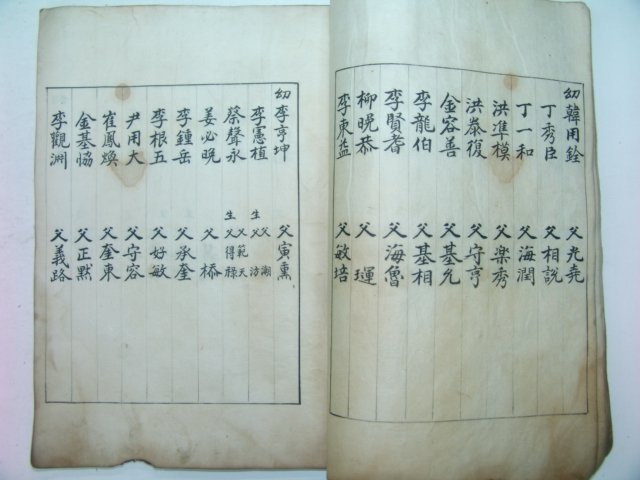 幼韓用銓 父光堯
丁秀臣 父相說
丁一和 父海潤
洪準模 父樂秀
洪泰復 父守亨
金容善 父基允
李龍伯 父基相
李賢耆 父海魯
柳晩恭 父
李東益 父敏培
幼李亨坤 父寅熏
李憲植 父湖 生父涝
蔡聲永 父範天 生父得祿
姜必晩 父
李鍾岳 父承奎
李根五 父好敏
尹用大 父守容
崔鳳煥 父奎東
金基協 父正默
李觀洲 父義路